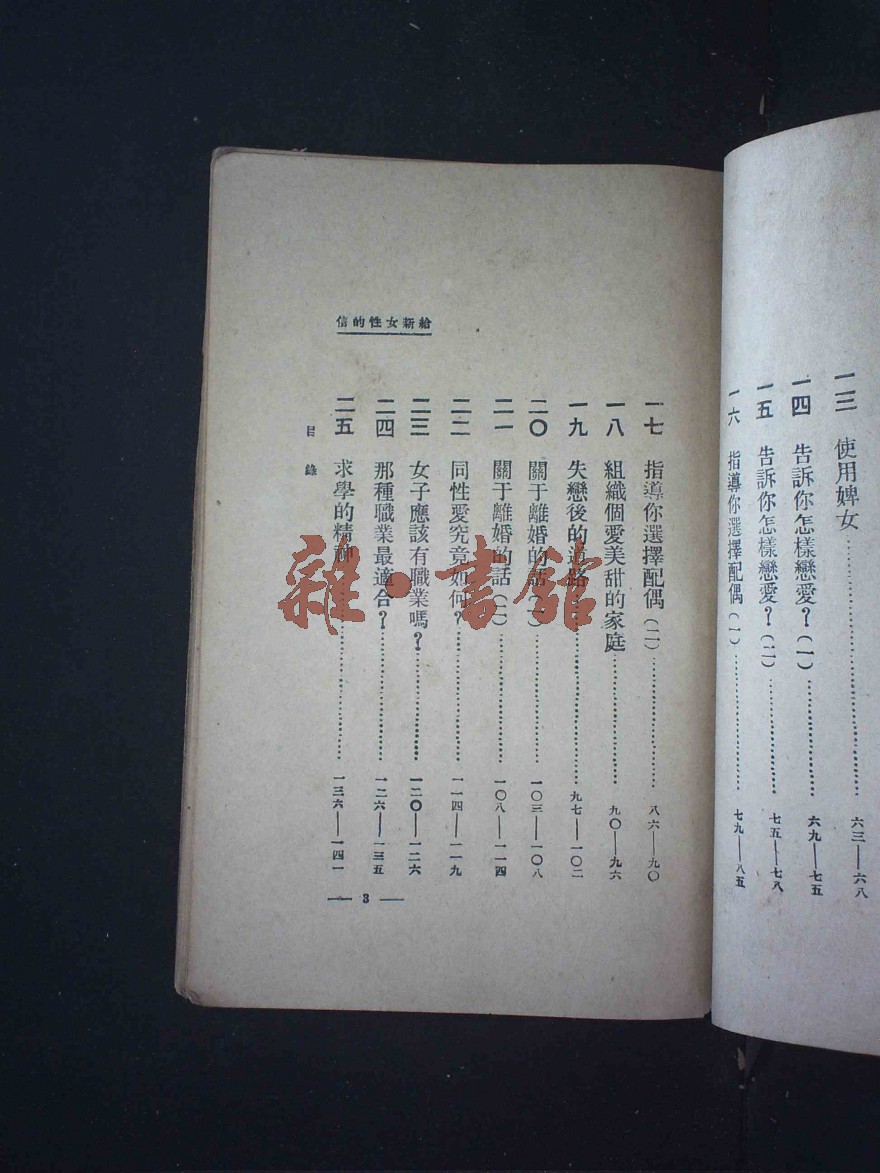 一三 使用婢女………………六三—六八
一四 告訴你怎樣戀愛?(一)………………六九—七五
一五 告訴你怎樣戀愛?(二)………………七五—七八
一六 指導你選擇配偶(一)………………七九—八五
給新女性的信
一七 指導你選擇配偶(二)………………八六—九〇
一八 組織個愛美甜的家庭………………九〇—九六
一九 失戀後的道路………………九七—一〇二
二〇 關于離婚的話(一)………………一〇三—一〇八
二一 關于離婚的話(二)………………一〇八—一一四
二二 同性愛究竟如何?………………一一四—一一九
二三 女子應該有職業嗎?………………一二〇—一二六
二四 那種職業最適合?………………一二六—一三五
二五 求學的精神………………一三六—一四一
目錄
— 3 —
雜·書館